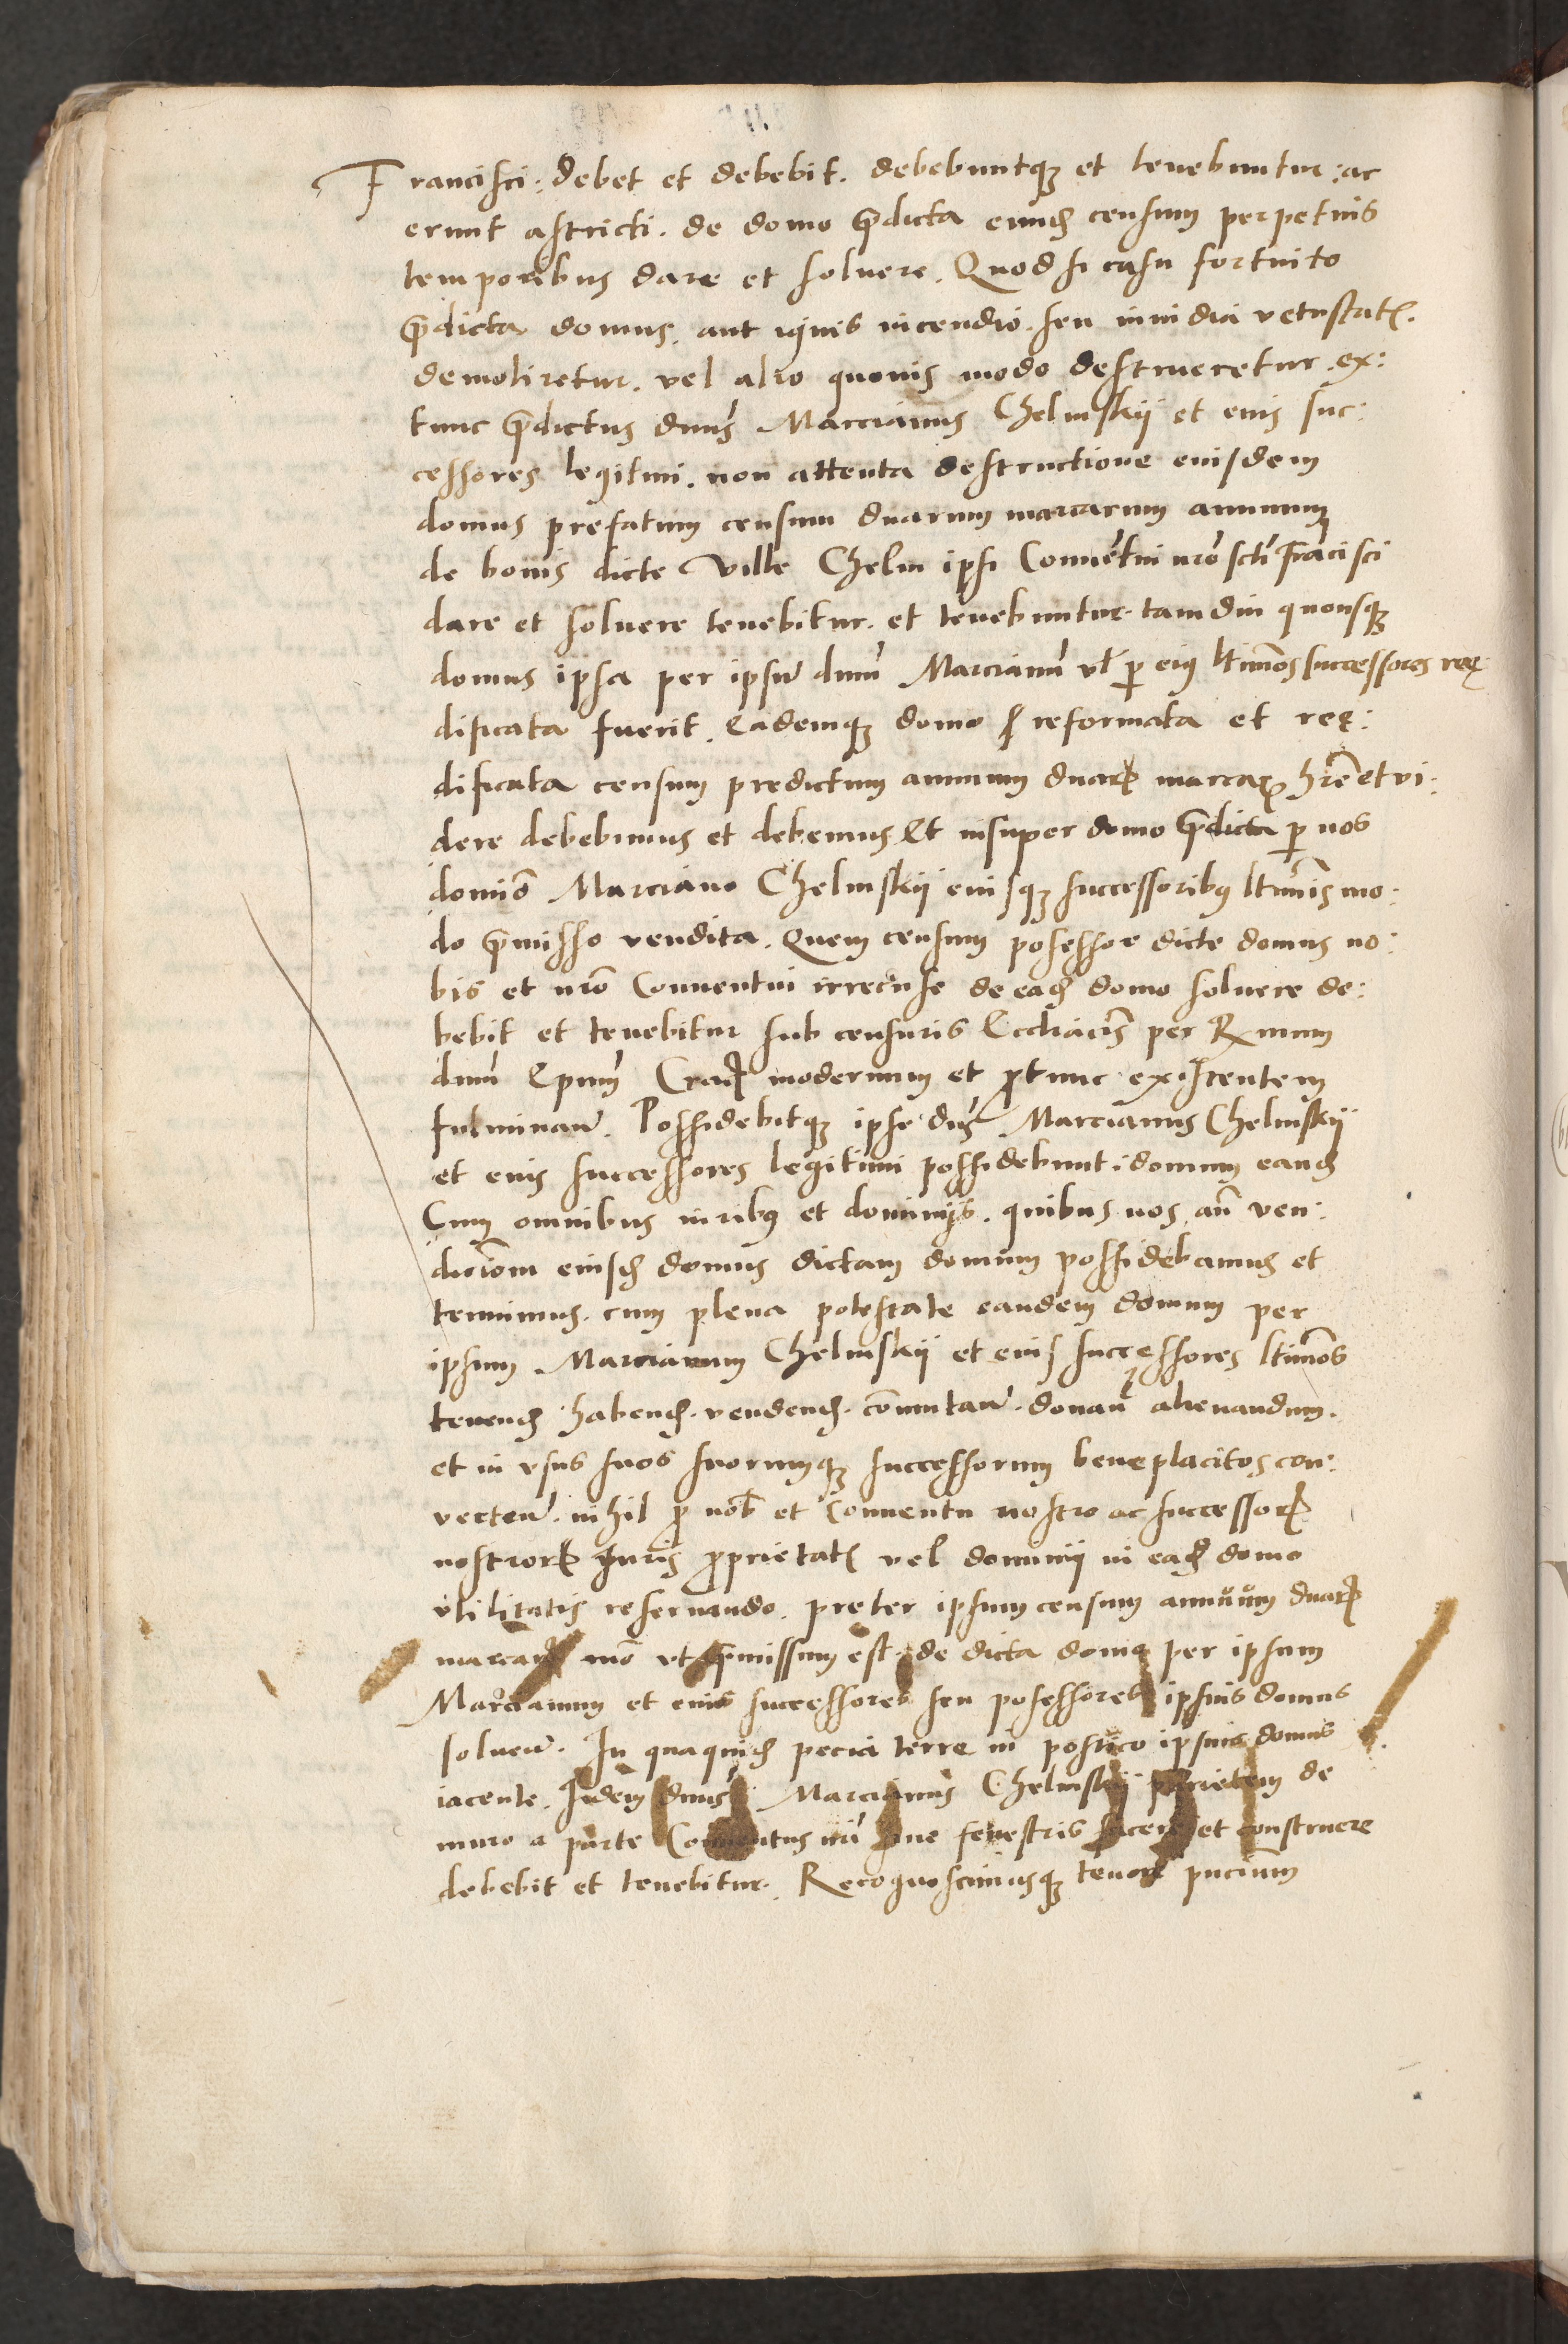 Francisci. Debet et debebit. debebuntqꝫ et tenebuntur: ac
erunt astricti. de domo p̄dicta eundẽ censum perpetuis
temporibus dare et soluere. Quod si casu fortuito
p̄dicta domus. aut ignis incendio. seu inuidia vetustatꝭ.
demoliretur. vel alio quouis modo destrueretur. ex:
tunc p̄dictus dnus̄ Marcianus Chelmskÿ et eius suc:
cessores legitimi. non attenta destructione eiusdem
domus prefatum censum duarum marcarum annuum
de bonis dicte Ville Chelm ipsi Conuẽtui nrõ sctĩ Frãcisci
dare et soluere tenebitur. et tenebuntur. tamdiu quousqꝫ
domus ipsa per ipsũ dnum̄ Marcianũ vꝉ ꝑ eiꝰ ltimõs successores reę:
dificata fuerit. Eademqꝫ domo reformata et reę:
dificata censum predictum annuum duarꝝ marcarꝝ hrẽ et vi:
dere debebimus et debemus Et insuper domo p̄dicta ꝑ nos
dominõ Marciano Chelmskÿ eiusqꝫ successoribꝰ ltimĩs mo:
do p̄misso vendita. Quem censum posessor dicte domus no:
bis et nrõ Conuentui irrecuse de eadẽ domo soluere de:
bebit et tenebitur sub censuris Ecclĩacis̃ per Rmum
dnum̄ Epum̄ Cracꝭ modernum et ꝓtunc existentem
fulminan̄. Possidebitqꝫ ipse dñs Marcianus Chelmskÿ
et eius successores legitimi possidebunt: domum eandẽ
Cum omnibus iuribꝰ et dominÿs. quibus nos añ ven:
dicõem eiusdẽ domus dictam domum possidebamus et
tenuimus. cum plena potestate eandem domum per
ipsum Marcianum Chelmskÿ et eius successores ltimõs
tenendẽ habendẽ. vendendẽ. cõmutan̄. donan̄ alienandum.
et in vsus suos suorumqꝫ successorum beneplacitos con:
verten̄. nihil ꝓ nob̃ et Conuentu nostro ac successorꝝ
nostrorꝝ Iuris ꝓprietatꝭ vel dominÿ in eadẽ domo
vtilitatis reseruando. pręter ipsum censum annuum duarꝝ
marcarꝝ mõ vt p̄missum est. de dicta domo per ipsum
Marcianum et eius successores seu posessores ipsius domus
soluen̄. In quaquidẽ pecia terre in postico ipsius domus
iacente. Idem dnus̄ Marcianus Chelmskÿ parietem de
muro a parte Conuentus nrĩ sine fenestris facere et construere
debebit et tenebitur. Recognoscimusqꝫ tenorẽ pñcium̃